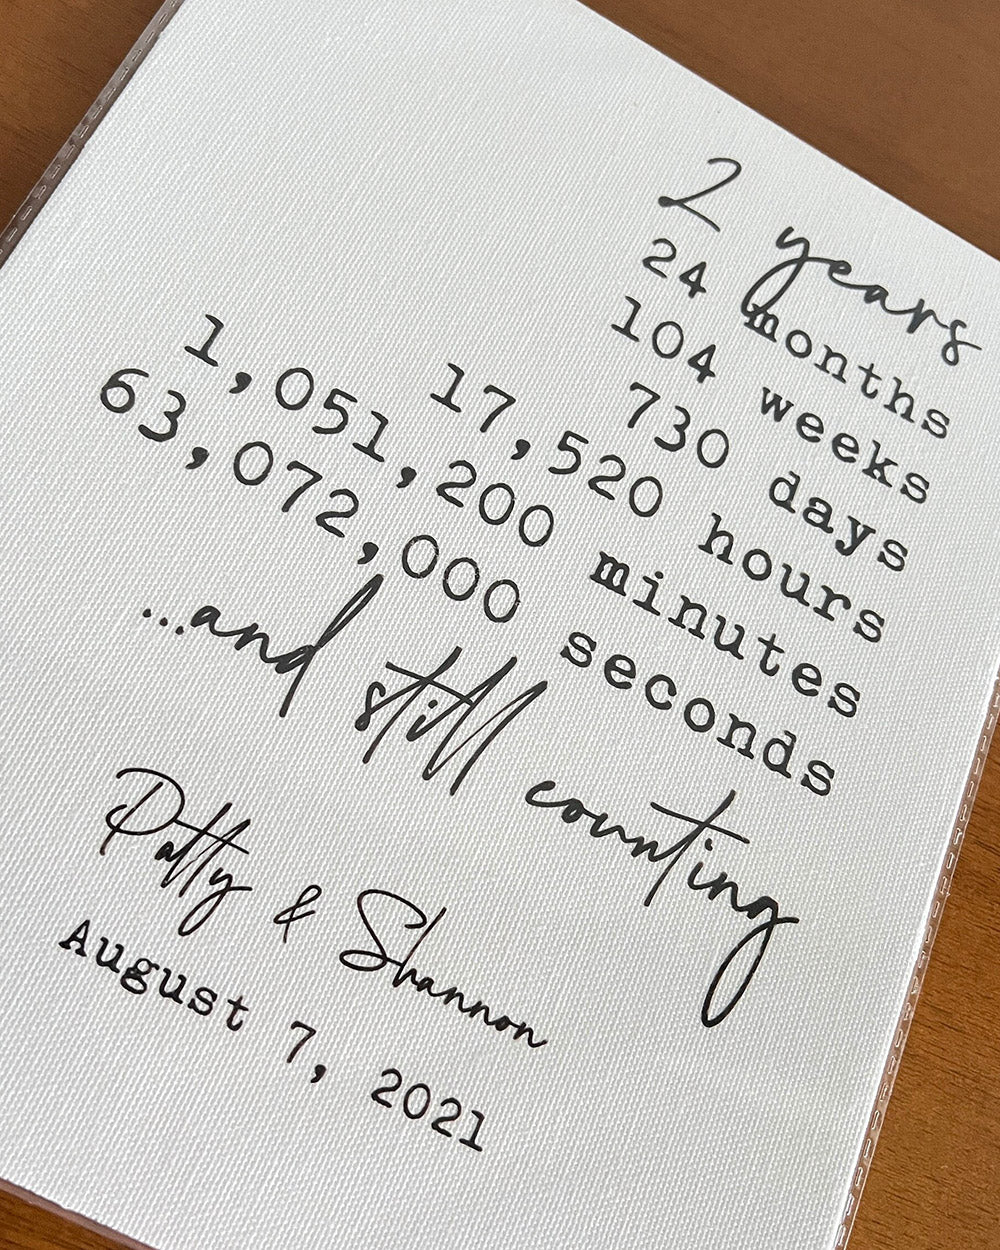 2 years
24 months
104 weeks
730 days
17,520 hours
1,051,200 minutes
63,072,000 seconds
...and still counting
Patty & Shannon
August 7, 2021